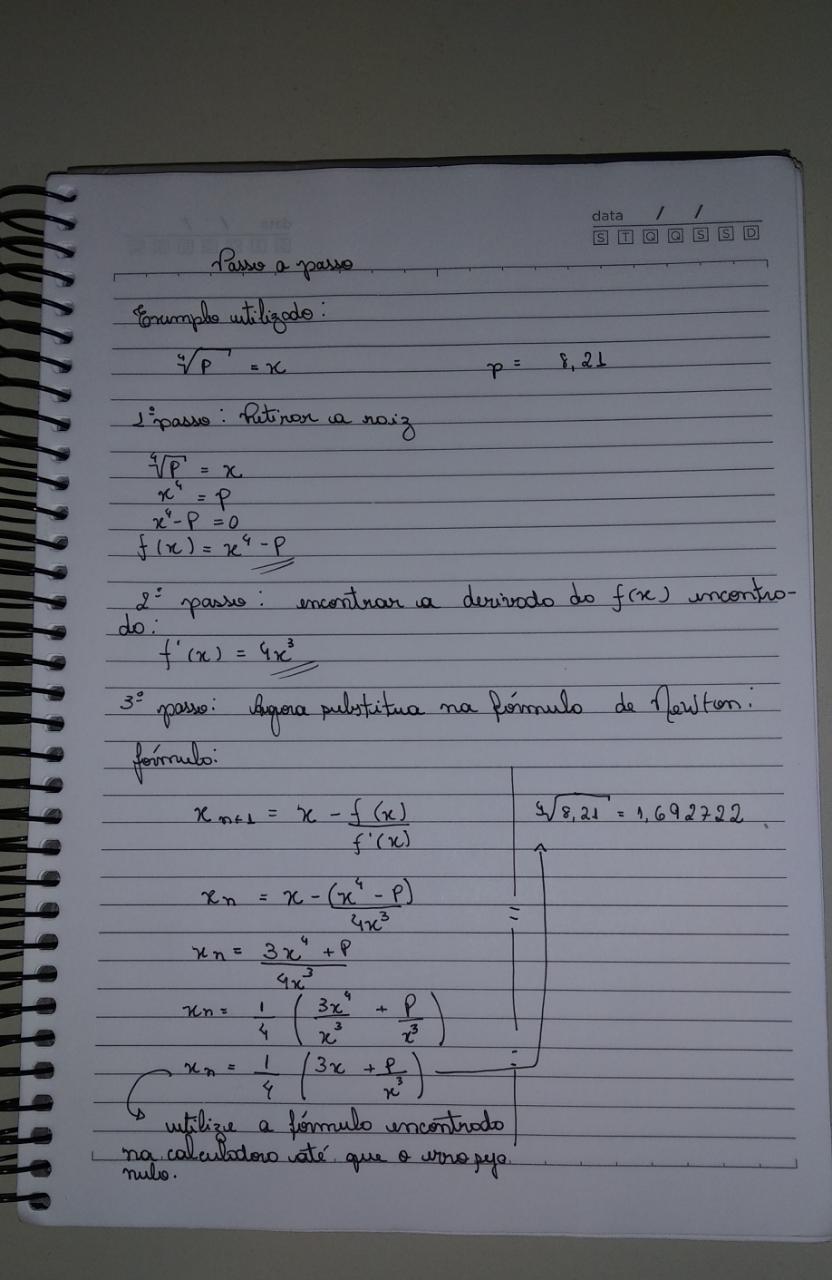 data / /
S T Q Q S S D
Passo a passo
Exemplo utilizado:
⁴√P = x p = 8,21
1º passo: Retirar a raiz
⁴√P = x
x⁴ = P
x⁴ - P = 0
f(x) = x⁴ - P
2º passo: encontrar a derivada do f(x) encontra-
do:
f'(x) = 4x³
3º passo: Agora substitua na fórmula de Newton:
fórmula:
x n+1 = x - f(x)/f'(x)
xn = x - (x⁴ - P)/4x³
xn = 3x⁴ + P/4x³
xn = 1/4 (3x⁴/x³ + P/x³)
xn = 1/4 (3x + P/x³)
utilize a fórmula encontrada
na calculadora até que o erro seja
nulo.
⁴√8,21 = 1,692722